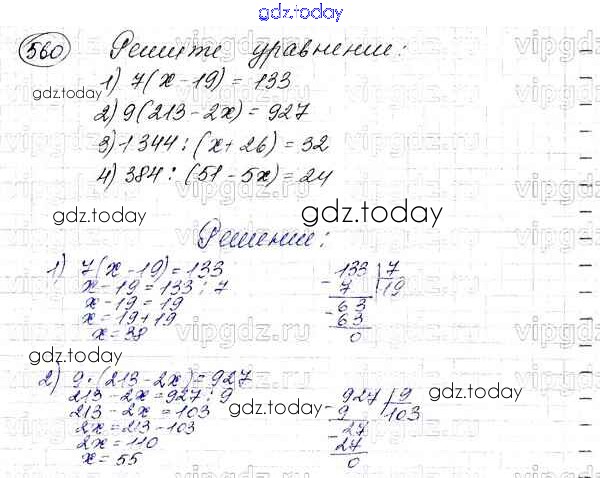 gdz.today
560 Решите уравнение:
1) 7(x-19) = 133
gdz.today
2) 9(213-2x) = 927
3) 1344 : (x+26) = 32
4) 384 : (51-5x) = 24
gdz.today
gdz.today
Решение:
1) 7(x-19) = 133
x-19 = 133 : 7
x-19 = 19
x = 19+19
x = 38
133 | 7
- 7 | 19
63
- 63
0
gdz.today
gdz.today
2) 9·(213-2x) = 927
213-2x = 927 : 9
213-2x = 103
2x = 213-103
2x = 110
x = 55
gdz.today
gdz.today
927 | 9
- 9 | 103
27
- 27
0
vipgdz.ru